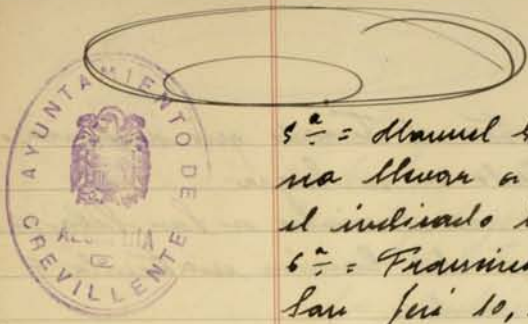 AYUNTAMIENTO DE CREVILLENTE
ALCALDIA
5ª = Manuel S
na llevar a
el indicado
6ª = Francisc
San José 10,